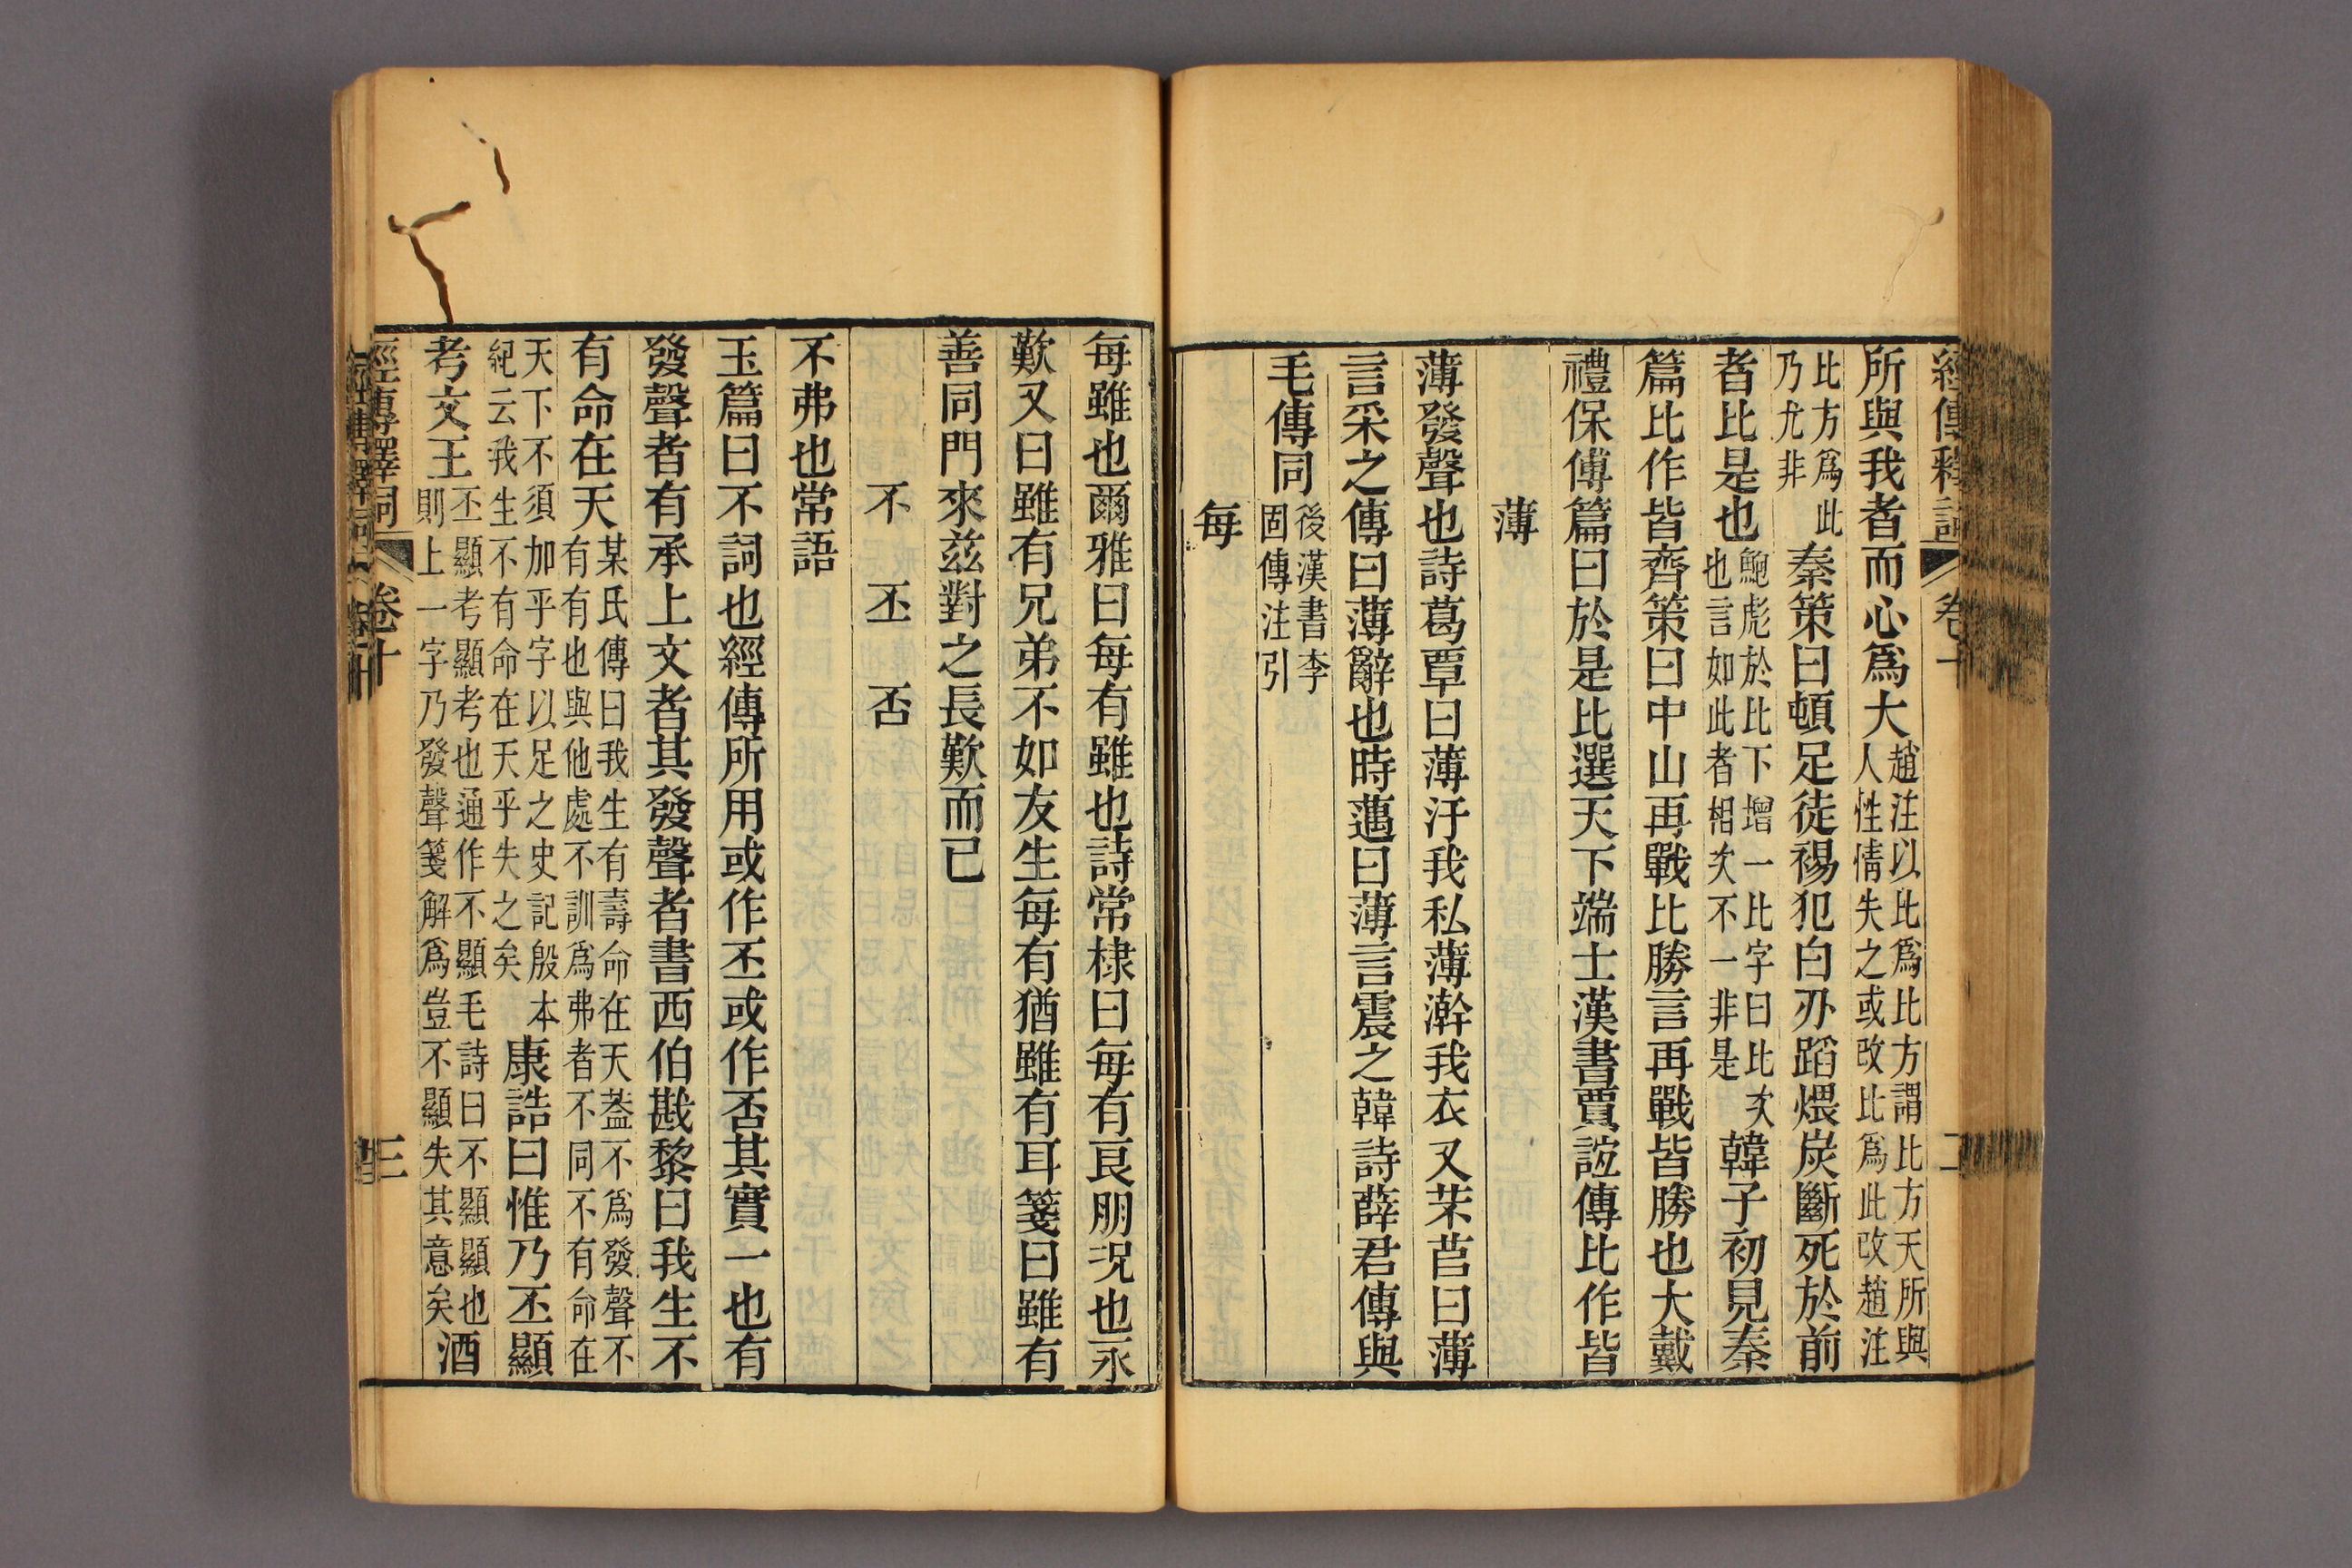 經傳釋詞 卷十 二
所與我者而心爲大趙注以比爲比方謂比方天所與
人性情失之或改比爲此改趙注
比方爲此
乃尤非秦策曰頓足徒裼犯白刃蹈煨炭斷死於前
者比是也鮑彪於比下增一比字曰比次
也言如此者相次不一非是韓子初見秦
篇比作皆齊策曰中山再戰比勝言再戰皆勝也大戴
禮保傅篇曰於是比選天下端士漢書賈誼傳比作皆
薄
薄發聲也詩葛覃曰薄汙我私薄澣我衣又芣苢曰薄
言采之傳曰薄辭也時邁曰薄言震之韓詩薛君傳與
毛傳同後漢書李
固傳注引
每
每雖也爾雅曰每有雖也詩常棣曰每有良朋況也永
歎又曰雖有兄弟不如友生每有猶雖有耳箋曰雖有
善同門來茲對之長歎而已
不 丕 否
不弗也常語
玉篇曰不詞也經傳所用或作丕或作否其實一也有
發聲者有承上文者其發聲者書西伯戡黎曰我生不
有命在天某氏傳曰我生有壽命在天葢不爲發聲不
有有有也與他處不訓爲弗者不同不有命在
天下不須加乎字以足之史記殷本
紀云我生不有命在天乎失之矣康誥曰惟乃丕顯
考文王丕顯考顯考也通作不顯毛詩曰不顯顯也
則上一字乃發聲箋解爲豈不顯失其意矣酒
經傳釋詞 卷十 三